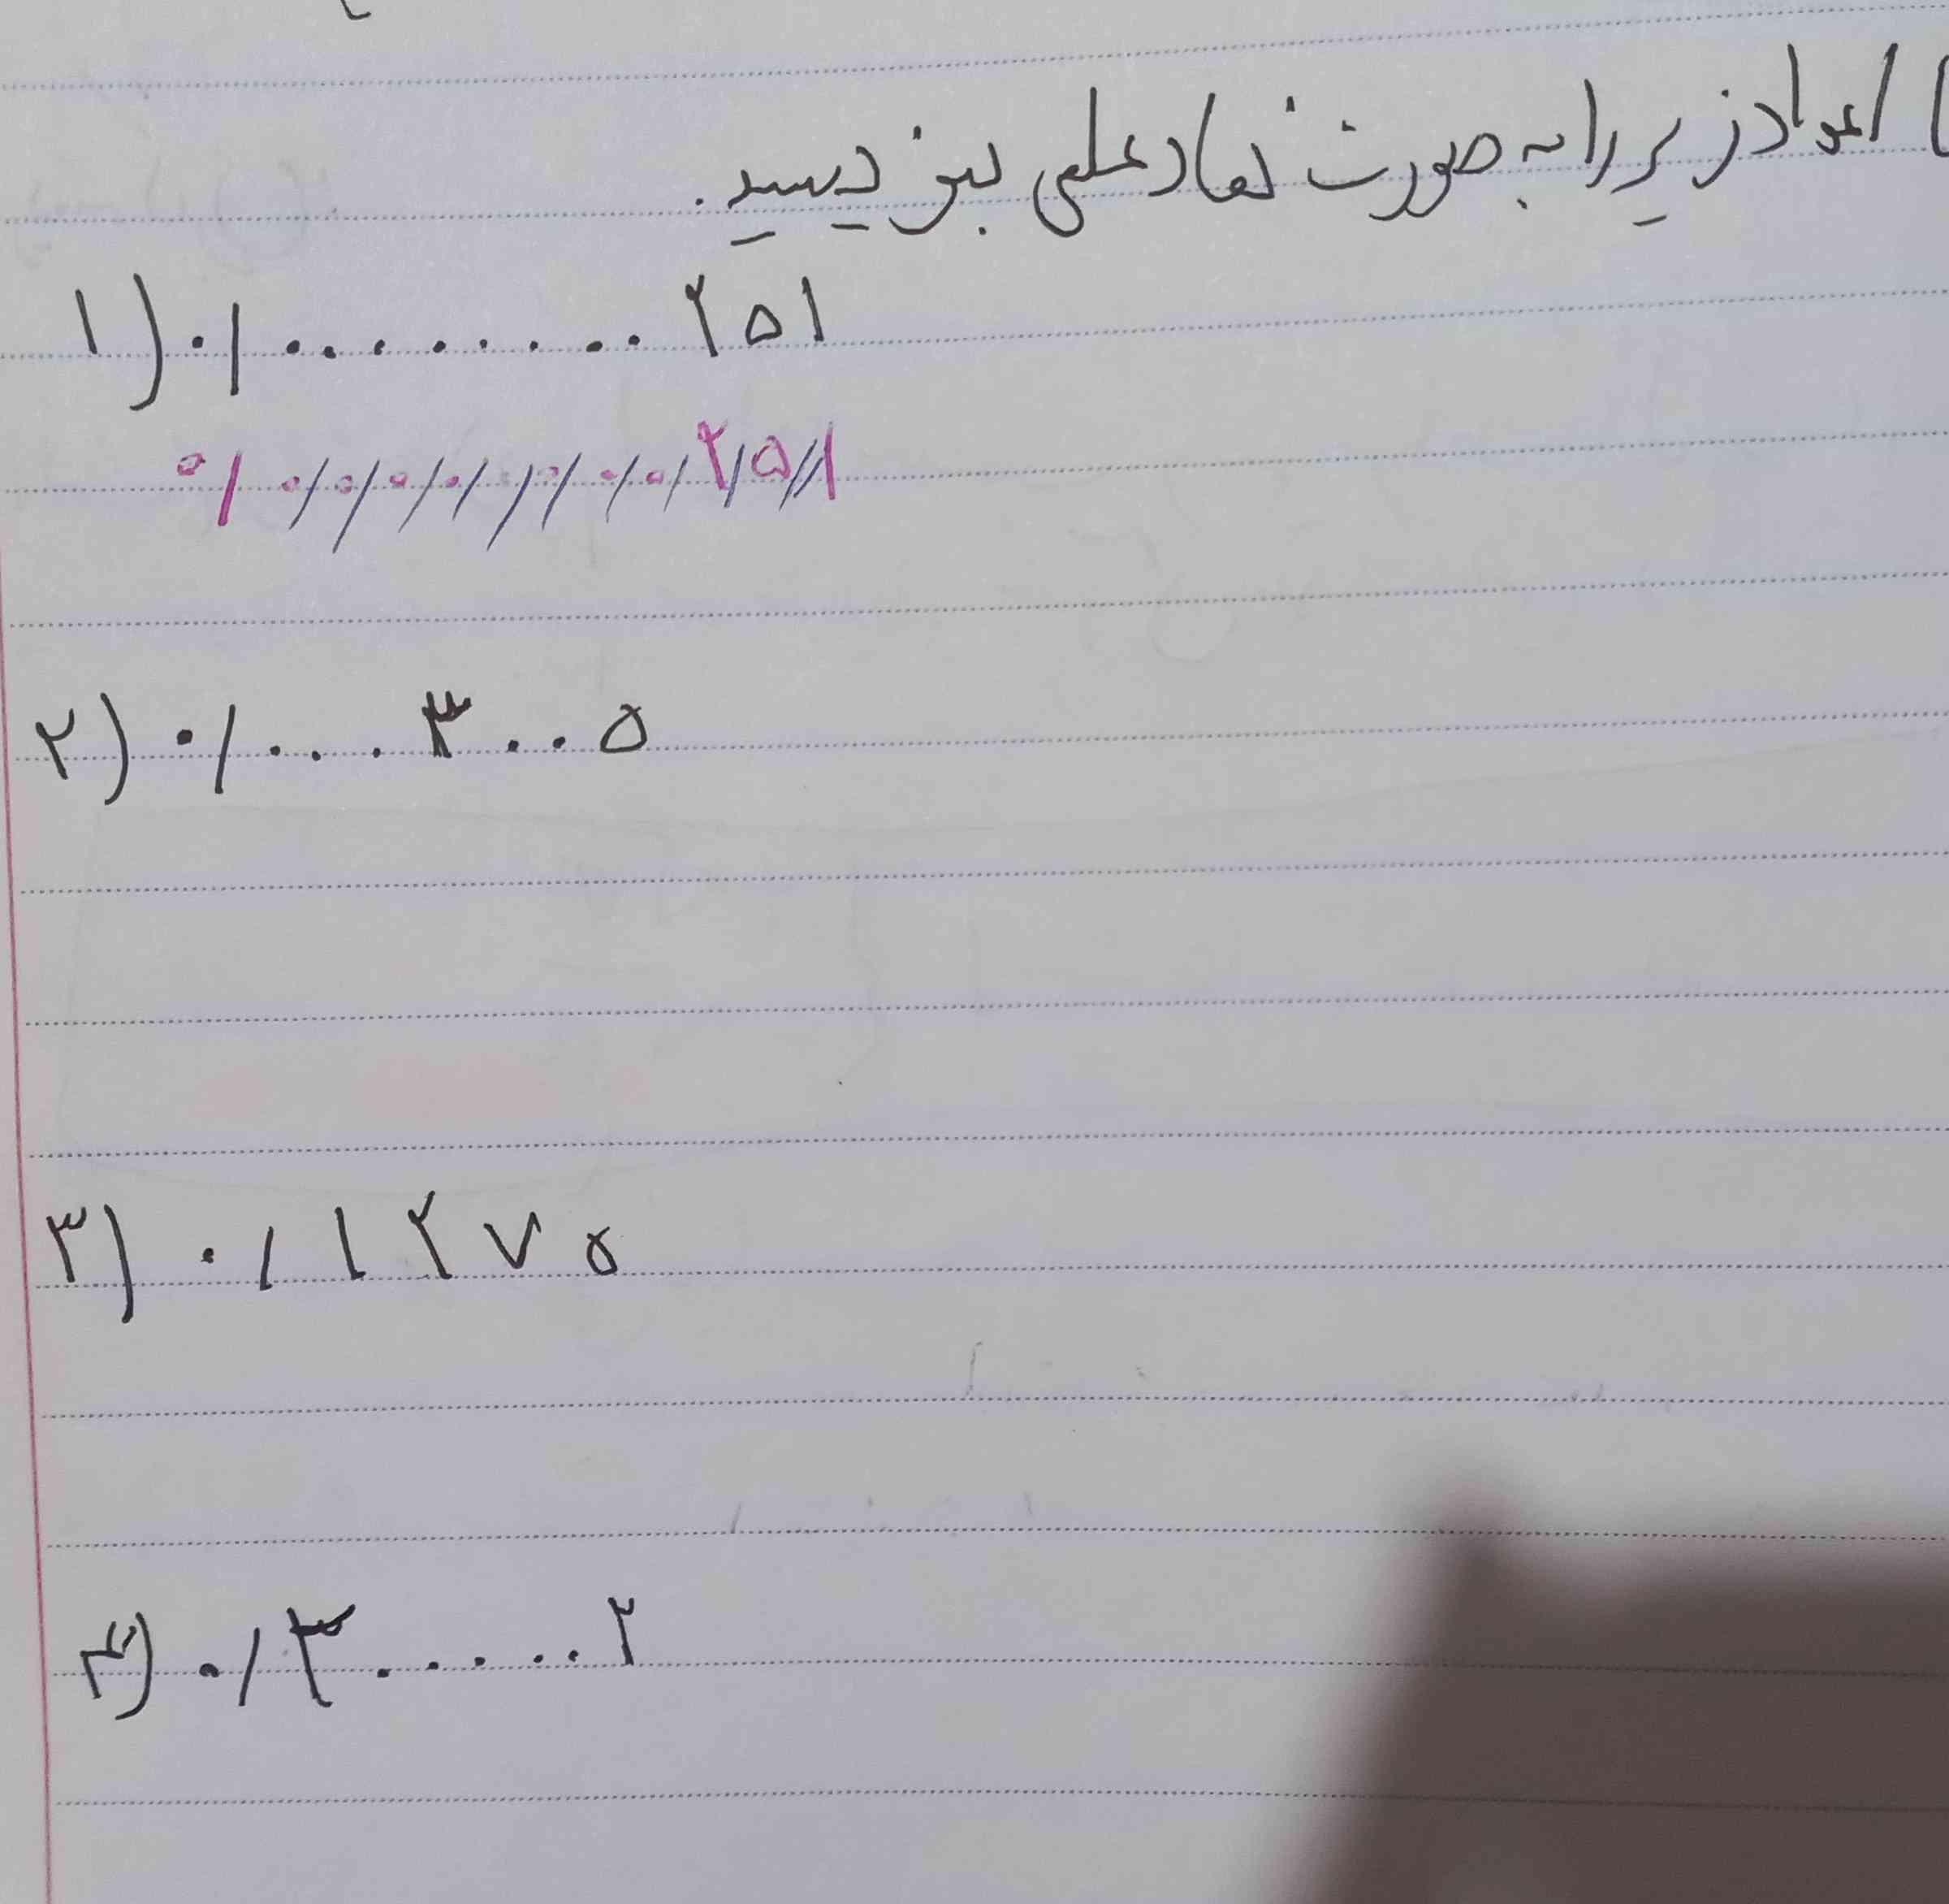 ) اعداد زیر را به صورت نماد علمی بنویسید.
۱) ۰/۰۰۰۰۰۰۰۰۲۵۱
۲) ۰/۰۰۰۳۰۰۵
۳) ۰/۱۲۷۵
۴) ۰/۳۰۰۰۰۰۲